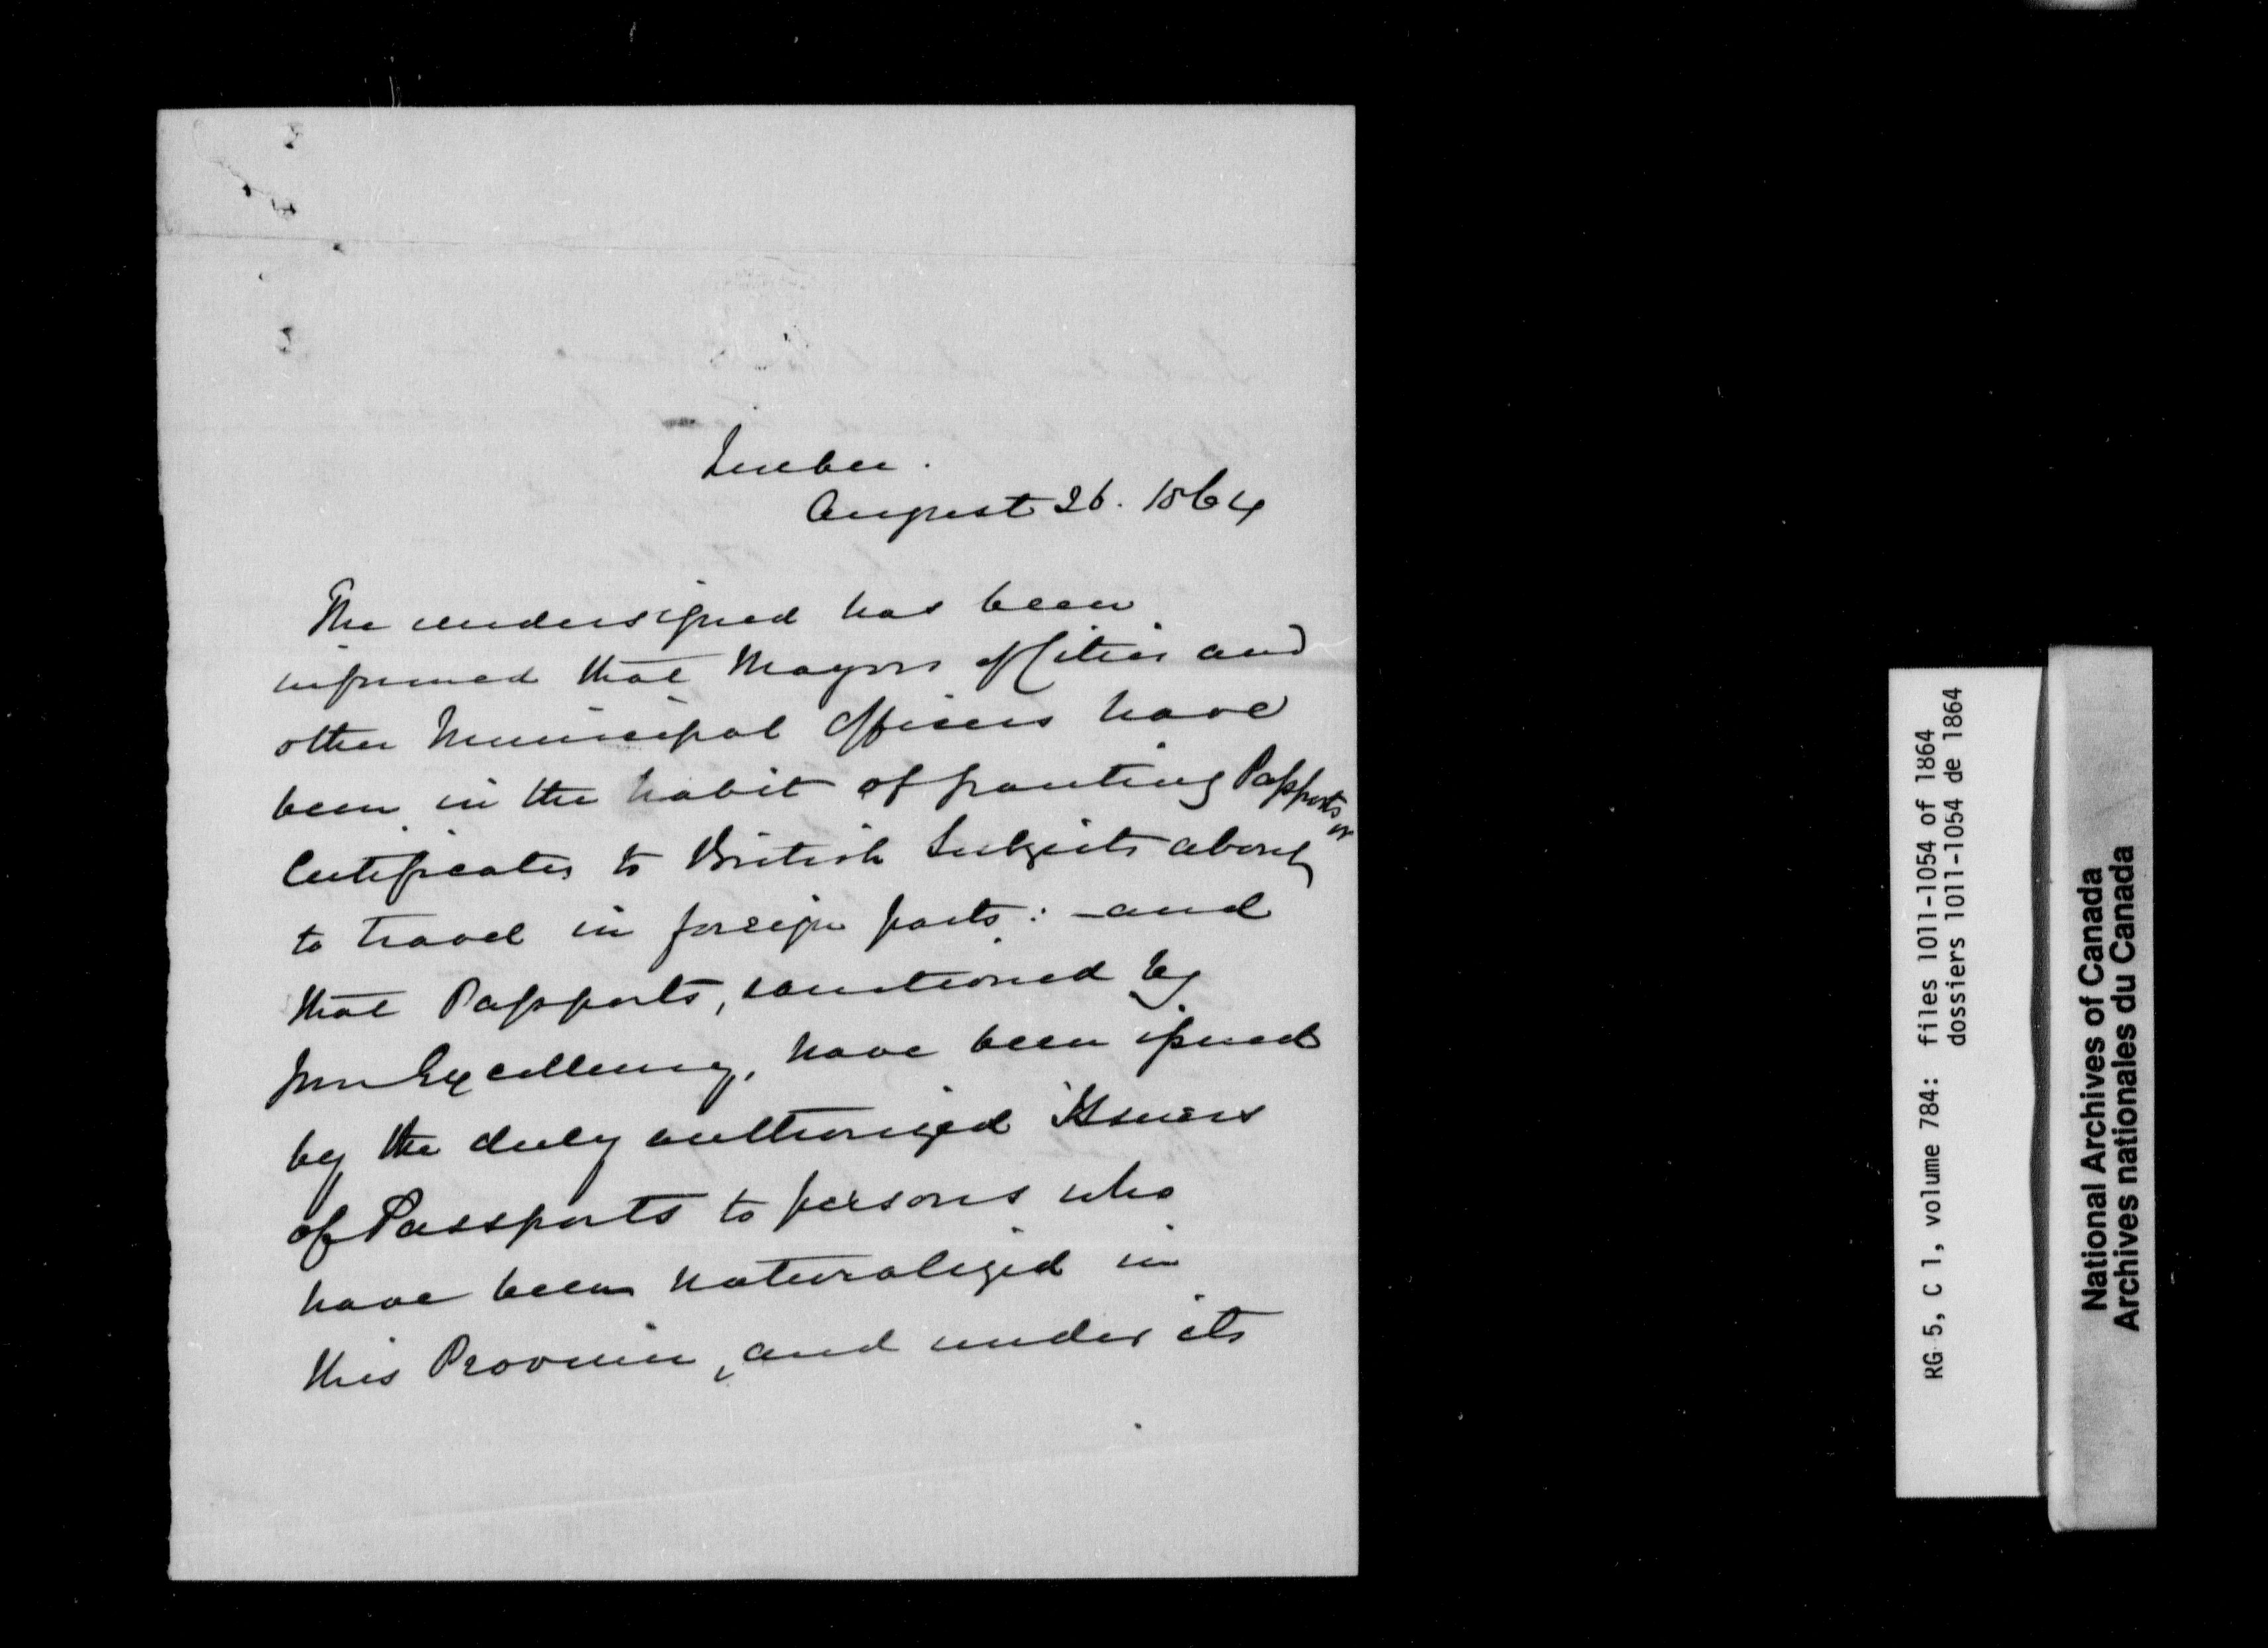 Quebec.
August 26. 1864
The undersigned has been
informed that Mayors of Cities and
other Municipal Officers have
been in the habit of granting Passports or
Certificates to British Subjects about
to travel in foreign parts: - and
that Passports, sanctioned by
Your Excellency, have been issued
by the duly authorized Issuers
of Passports to persons who
have been naturalized in
this Province, and under its
RG 5, C 1, volume 784: files 1011-1054 of 1864
dossiers 1011-1054 de 1864
National Archives of Canada
Archives nationales du Canada